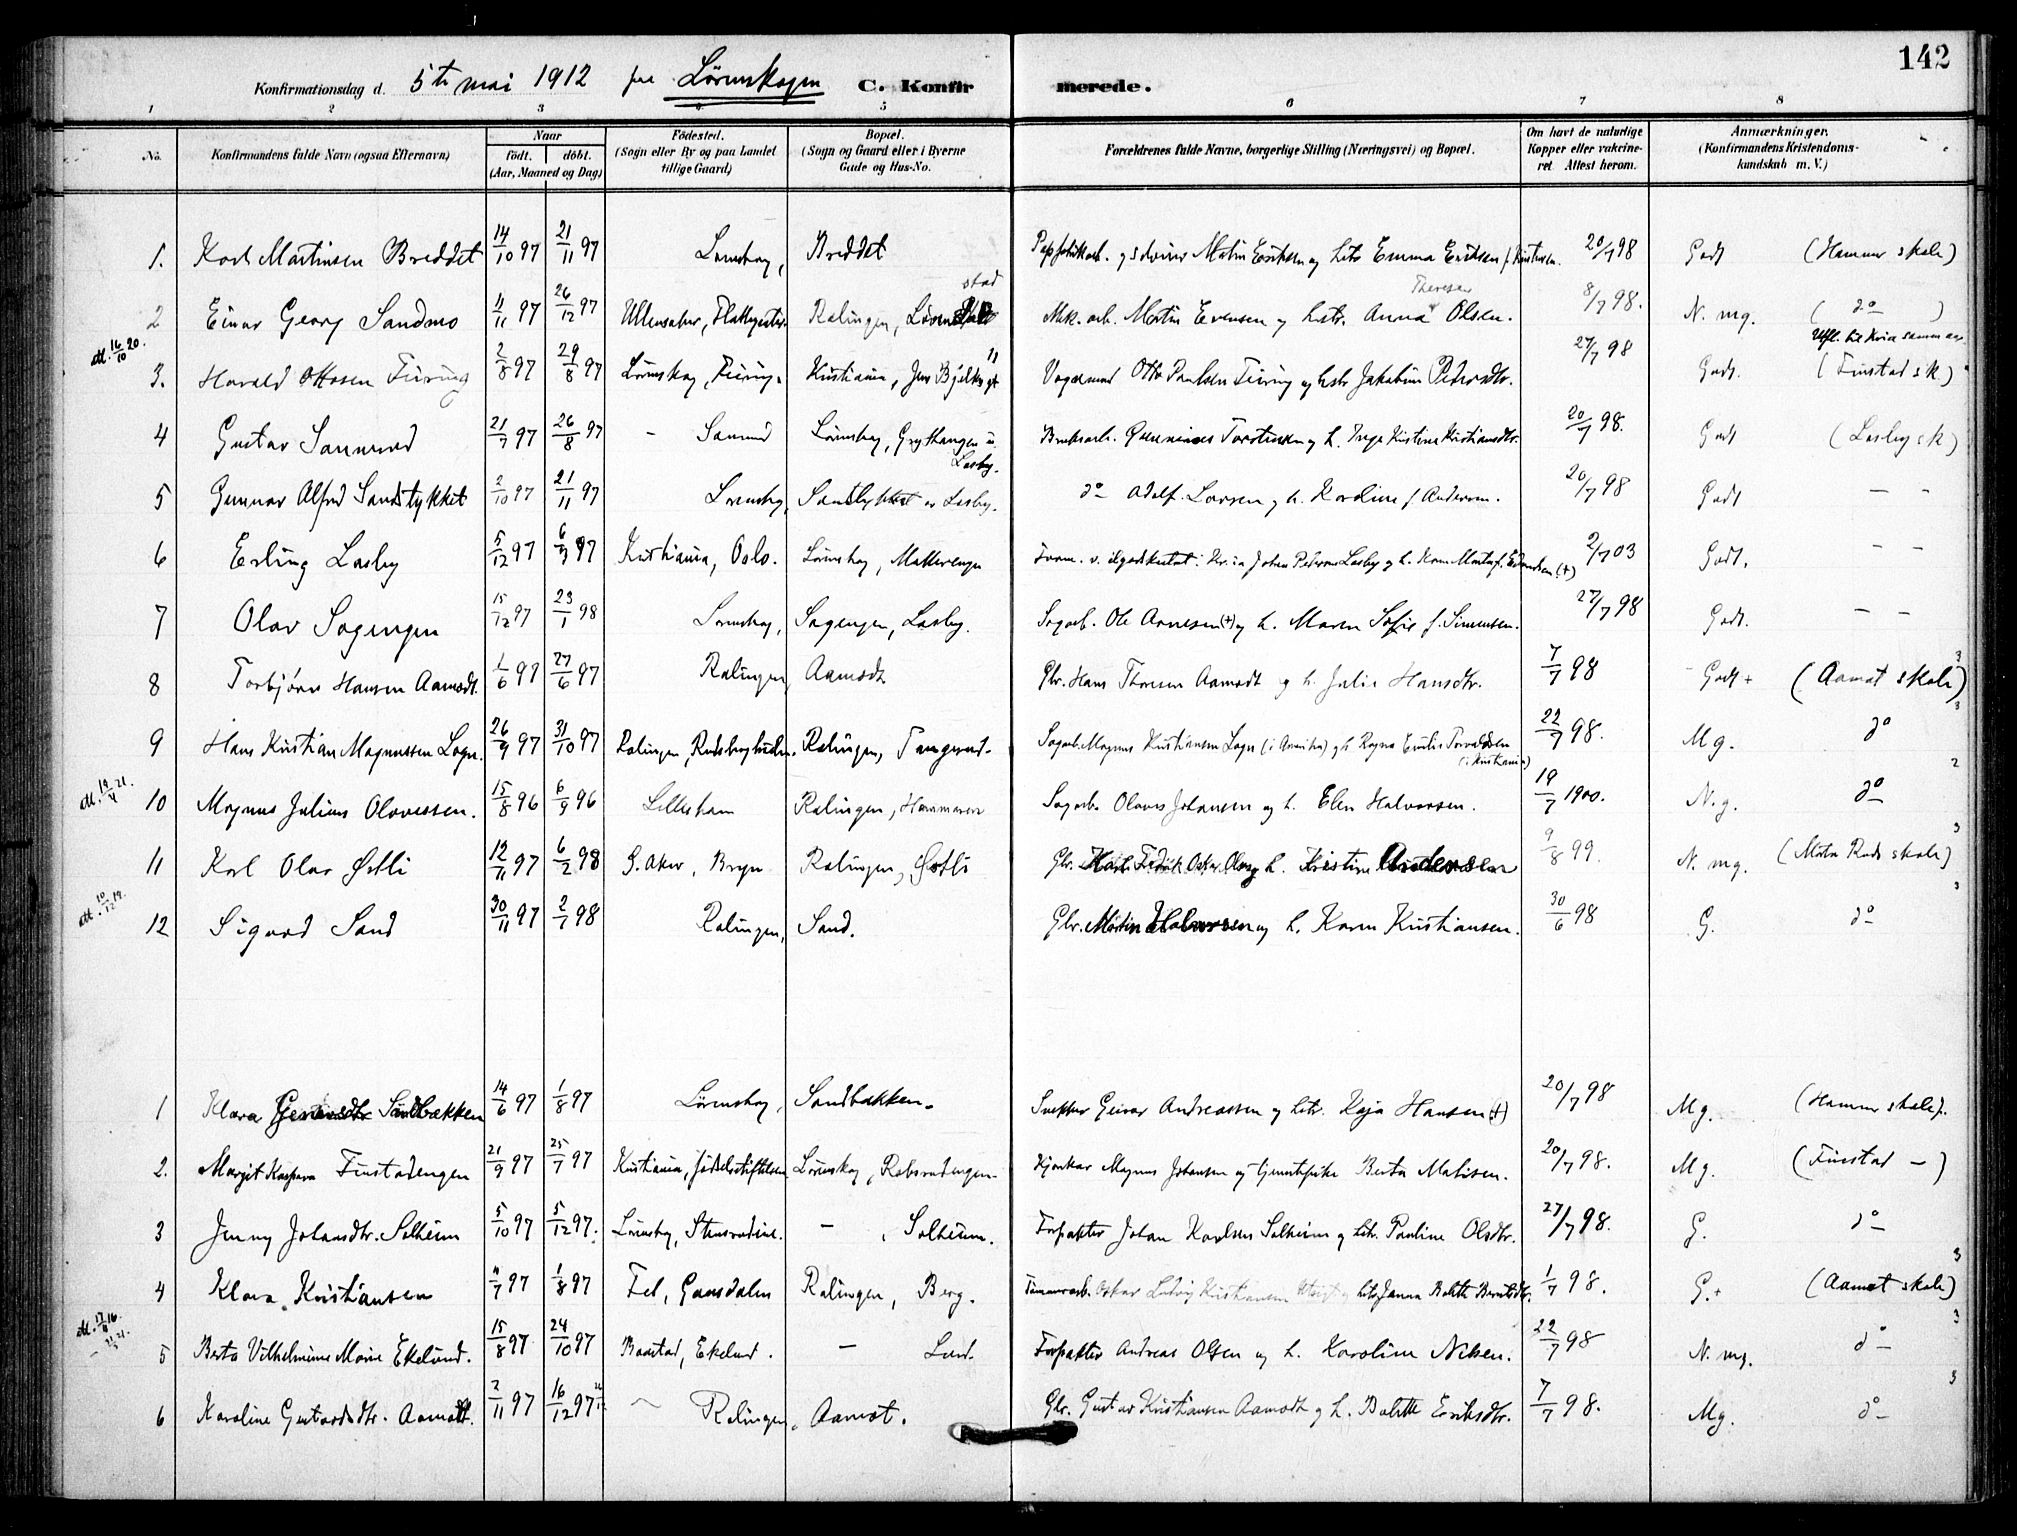 142
Konfirmationsdag d. 5te mai 1912 paa Lørenskogen C. Konfirmerede.
1 2 3 4 5 6 7 8
No. Konfirmandens fulde Navn (ogsaa Efternavn) Naar født. døbt. (Aar, Maaned og Dag) Fødested. (Sogn eller By og paa Landet tillige Gaard) Bopæl. (Sogn og Gaard eller i Byerne Gade og Hus-No. Forældrenes fulde Navne, borgerlige Stilling (Næringsvei) og Bopæl. Om havt de naturlige Kopper eller vakcineret. Attest herom. Anmærkninger. (Konfirmandens Kristendomskundskab m. V.)
1. Karl Martinsen Breddet 14/10 97 21/11 97 Lørenskog, Breddet Martin Eriksen og Emma Eriksen f. Kristensen. 20/7 98 Godt (Hammer skole)
2 Einar Georg Sandmo 11/11 97 26/12 97 Ullensaker, Rælingen, Mek. arb. Martin Evensen og hstr. Anna Theresea Olsen. 8/7 98. N. mg. ( do )
att. 16/10 20.
3. Harald Ottosen Fiiring 2/8 97 29/8 97 Lørenskog, Fiiring. Kristiania, Jens Bjelkes gt 11 Vognmand Otto Paulsen Fiiring og hstr Jakobine Pedersdtr. 27/7 98 Godt. (Finstad sk.)
4 Gustav Sannerud 21/7 97 26/8 97 – Sannerud Lørenskog, Losby. Torstensen og h. Inga Kristine Kristiansdtr. 20/7 98. Godt (Losby sk)
5 Gunnar Alfred Sandstykket 2/10 97 21/11 97 Lørenskog, Sandstykket u. Losby. do Adolf Larsen og h. Karoline f. Andersen. 20/7 98 Godt – –
6 Erling Losby 5/12 97 97 Kristiania, Oslo. Lørenskog, Johan Pedersen Losby og h. (+) 2/7 03 Godt. – –
7 Olav Sagengen 15/12 97 23/1 98 Lørenskog, Sagengen, Losby. Sagarb. Ole Arnesen (+) og h. Maren Sofie f. Simensen. 27/7 98 Godt. – –
8 Torbjørn Hansen Aamodt. 1/6 97 27/6 97 Rælingen, Aamodt. Gbr. Hans Thoresen Aamodt og h. Julie Hansdtr. 7/7 98 Godt + (Aamot skole) 3
9 Hans Kristian Magnussen Løgn. 26/9 97 31/10 97 Rælingen, Rælingen, Tangerud. Sagarb. Magnus Kristiansen (i Amerika) og h. Ragna Emilie (i Kristiania) 22/7 98. Mg. do 3
att. 19/4 21.
10 Magnus Julius Olavessen. 15/8 96 6/9 96 Lillestrøm Rælingen, Hammeren Sagarb. Olaves Johansen og h. Elen Halvorsen. 19/7 1900. N. g. do 2
11 Karl Olav Østli 12/11 97 6/2 98 Ø. Aker, Bryn Rælingen, Østli Gbr. Karl Fredrik Oskar Olsen og h. Kristine Andersen 9/8 99. N. mg. (Marta Ruds skole) 3
att. 10/12 19.
12 Sigurd Sand 30/11 97 2/1 98 Rælingen, Sand. Gbr. Martin Halvorsen og h. Karen Kristiansen. 30/6 98 G. do 3
1 Klara Geirarsdtr Sandbækken 14/6 97 1/8 97 Lørenskog, Sandbakken. Geivar Andreassen og hstr. Kaja Hansen (+) 20/7 98 Mg. (Hammer skole).
2. Margit Kaspara Finstadengen 21/9 97 25/7 97 Kristiania, Fødselsstiftelsen Lørenskog, Robsrudengen. Magnus Johansen og Berta Matisen. 20/7 98. Mg. (Finstad –)
3 Jenny Johansdtr. Solheim 5/10 97 5/12 97. Lørenskog, – , Solheim. Forpakter Johan Karlsen Solheim og hstr. Pauline Olsdtr. 27/7 98. G. do
4 Klara Kristiansen 11/7 97 1/8 97 Fet, Gansdalen Rælingen, Berg. Tømmerarb. Oskar Ludvig Kristiansen og hstr Janna Bolette Berntsdtr. 1/7 98. G. + (Aamot skole) 3
5 Berta Vilhelmine Marie Ekelund. 15/8 97 24/10 97 Baastad, Ekelund. – Lund. Forpakter Andreas Olsen og h. Karoline Nilsen. 22/7 98 N. mg. do 3
6 Karoline Gustavsdtr. Aamodt. 2/11 97 16/12 97 Rælingen, Aamot. Gbr. Gustav Kristiansen Aamodt og h. Bolette Eriksdtr. 7/7 98. Mg. do 3